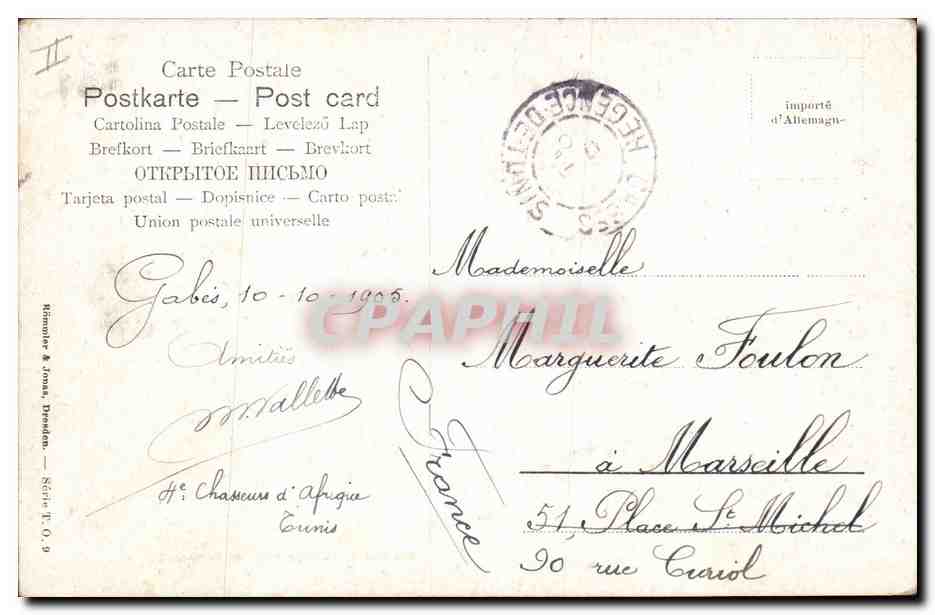 II
Carte Postale
Postkarte — Post card
Cartolina Postale — Levelező Lap
Brefkort — Briefkaart — Brevkort
ОТКРЫТОЕ ПИСЬМО
Tarjeta postal — Dopisnice — Carto posta
Union postale universelle
importé
d'Allemagne
REGENCE DE TUNIS
Mademoiselle
Gabès, 10-10-1905.
CPAPHIL
Marguerite Foulon
Amitiés
France
à Marseille
4e Chasseurs d'Afrique
Tunis
51, Place St Michel
90 rue Curiol
Römmler & Jonas, Dresden. — Série T. O. 9